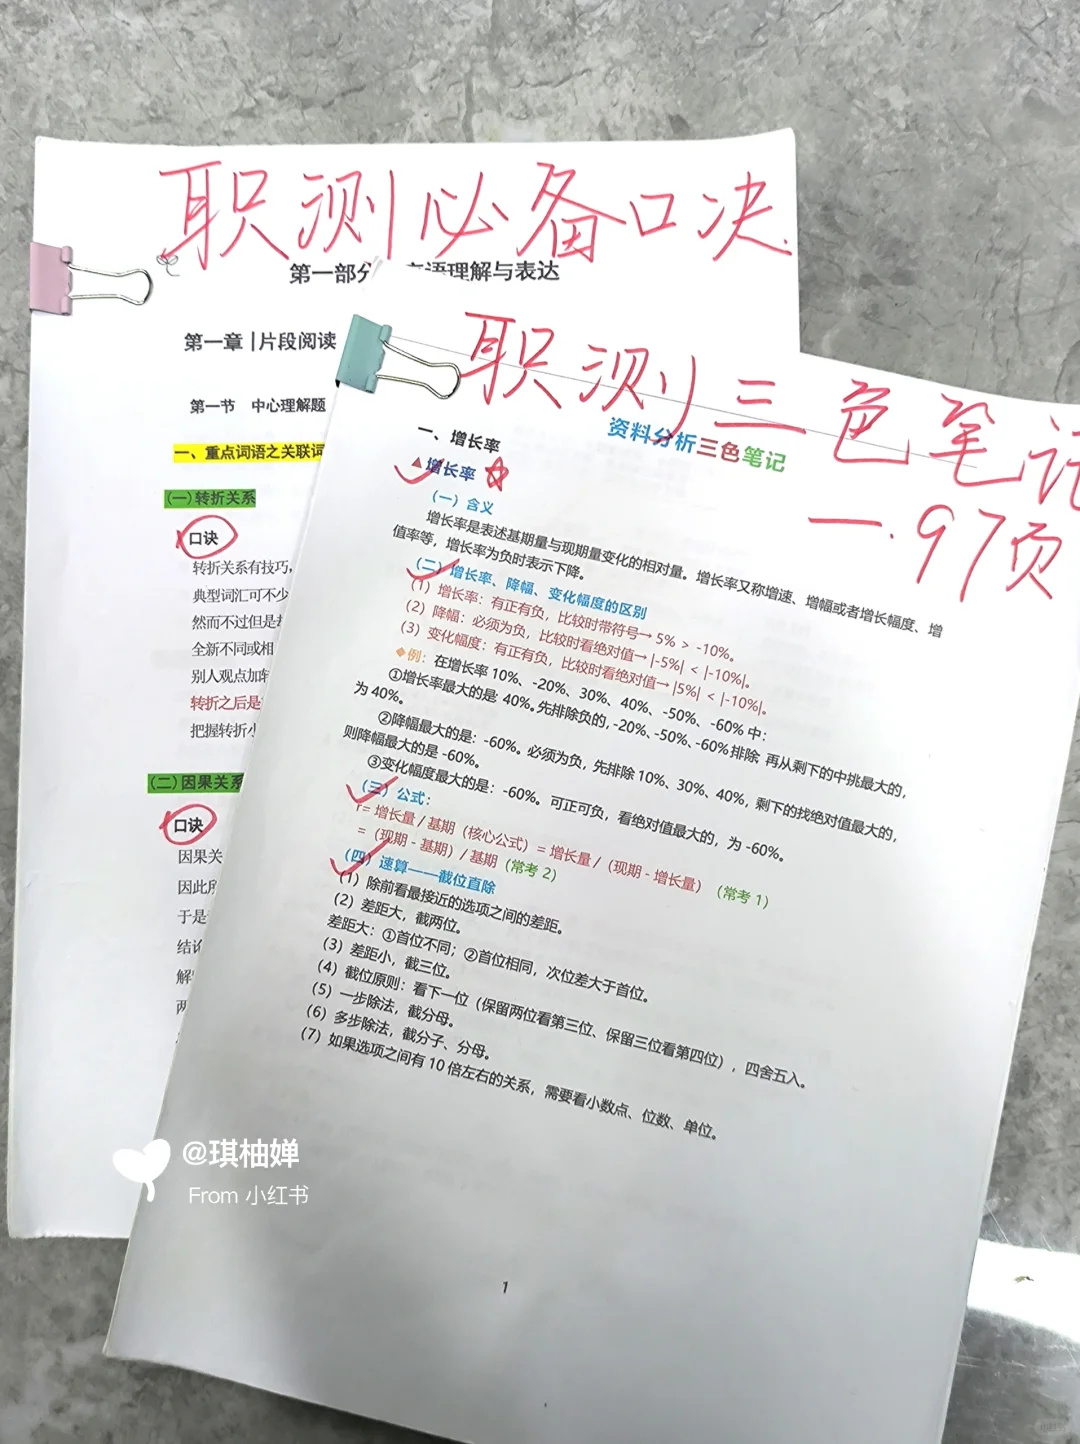 职测必备口决
第一部分 言语理解与表达
第一章 | 片段阅读
第一节 中心理解题
一、重点词语之关联词
(一)转折关系
口诀
转折关系有技巧，
典型词汇可不少
然而不过但是
全新不同或相
别人观点加
转折之后是
把握转折小
(二)因果关系
口诀
因果关
因此所
于是
结论
解
两
职测三色笔记
一.97页
资料分析三色笔记
一、增长率
▲增长率
（一）含义
增长率是表述基期量与现期量变化的相对量。增长率又称增速、增幅或者增长幅度、增
值率等，增长率为负时表示下降。
（二）增长率、降幅、变化幅度的区别
（1）增长率：有正有负，比较时带符号→ 5% > -10%。
（2）降幅：必须为负，比较时看绝对值→ |-5%| < |-10%|。
（3）变化幅度：有正有负，比较时看绝对值→ |5%| < |-10%|。
◆例：在增长率 10%、-20%、30%、40%、-50%、-60% 中：
①增长率最大的是: 40%。先排除负的, -20%、-50%、-60% 排除. 再从剩下的中挑最大的，
为 40%。
②降幅最大的是：-60%。必须为负，先排除 10%、30%、40%，剩下的找绝对值最大的，
则降幅最大的是 -60%。
③变化幅度最大的是：-60%。可正可负，看绝对值最大的，为 -60%。
（三）公式：
r= 增长量 / 基期（核心公式）= 增长量 /（现期 - 增长量）（常考 1）
=（现期 - 基期）/ 基期（常考 2）
（四）速算——截位直除
（1）除前看最接近的选项之间的差距。
（2）差距大，截两位。
差距大：①首位不同；②首位相同，次位差大于首位。
（3）差距小，截三位。
（4）截位原则：看下一位（保留两位看第三位、保留三位看第四位），四舍五入。
（5）一步除法，截分母。
（6）多步除法，截分子、分母。
（7）如果选项之间有 10 倍左右的关系，需要看小数点、位数、单位。
1
@琪柚婵
From 小红书